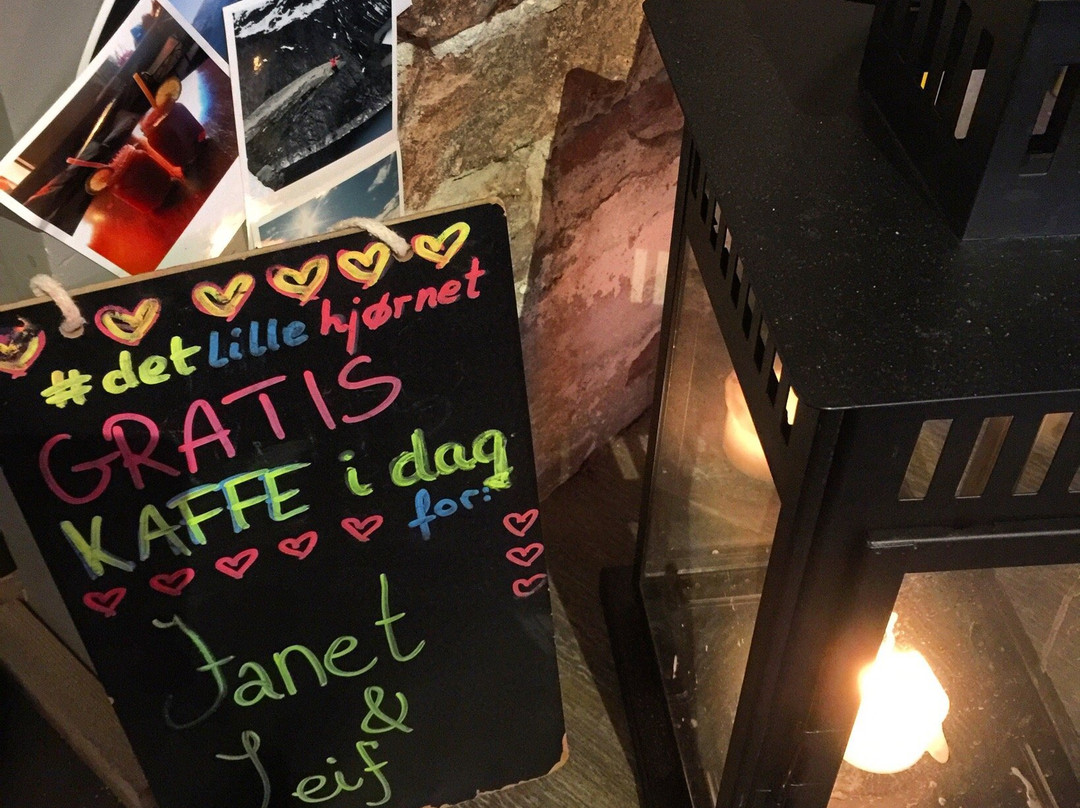 #det lille hjørnet
GRATIS
KAFFE i dag
for:
Janet
&
Leif